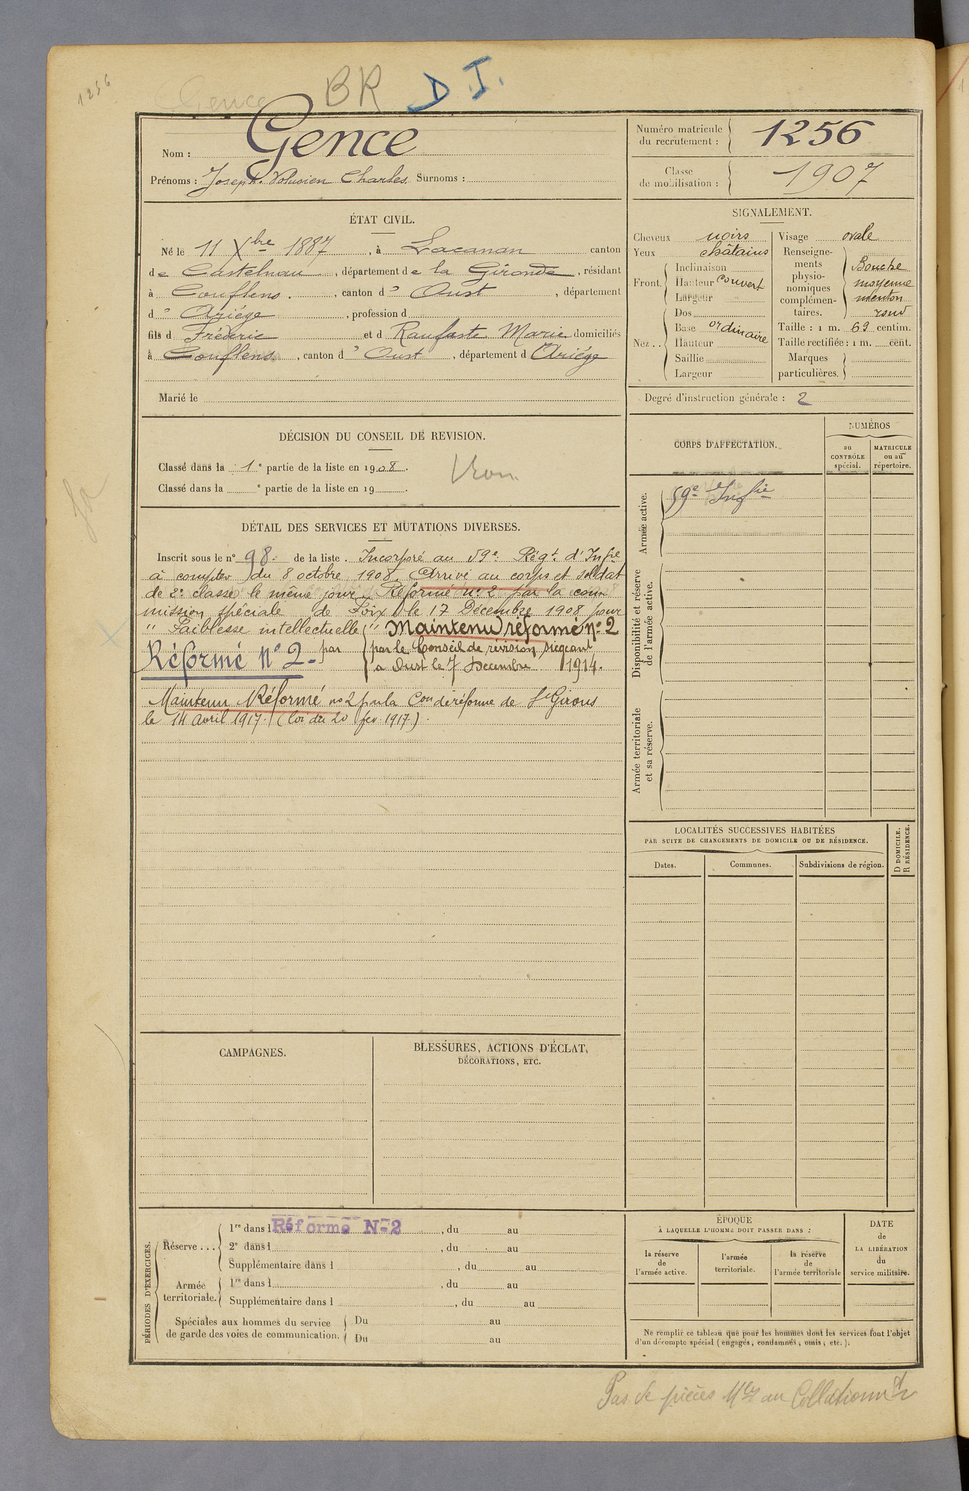 1256
Gence BR D J.
Nom : Gence
Prénoms : Joseph Volusien Charles Surnoms :
Numéro matricule du recrutement : 1256
Classe de mobilisation : 1907
ÉTAT CIVIL.
Né le 11 Xbre 1887, à Lacanau canton
de Castelnau, département de la Gironde, résidant
à Couflens, canton d' Oust, département
d' Ariége, profession d
fils d Fréderic et d Raufaste Marie domiciliés
à Couflens, canton d' Oust, département d Ariége
Marié le
SIGNALEMENT.
Cheveux noirs
Yeux châtains
Front. Inclinaison
Hauteur couvert
Largeur
Nez.. Dos
Base ordinaire
Hauteur
Saillie
Largeur
Visage ovale
Renseignements physionomiques complémentaires. Bouche moyenne menton rond
Taille : 1 m. 62 centim.
Taille rectifiée : 1 m. cent.
Marques particulières.
Degré d'instruction générale : 2
DÉCISION DU CONSEIL DE REVISION.
Classé dans la 1e partie de la liste en 1908.
Classé dans la e partie de la liste en 19
CORPS D'AFFECTATION.
NUMÉROS
au CONTRÔLE spécial.
MATRICULE ou au répertoire.
Armée active.
59e Infrie
Disponibilité et réserve de l'armée active.
Armée territoriale et sa réserve.
DÉTAIL DES SERVICES ET MUTATIONS DIVERSES.
Inscrit sous le n° 98 de la liste. Incorporé au 59e Régt d'Infie
à compter du 8 octobre 1908. Arrivé au corps et soldat
de 2e classe le même jour. Réformé n° 2 par la com
mission spéciale de Foix le 17 Décembre 1908 pour
" Faiblesse intellectuelle " Maintenu réformé n° 2
Réformé N° 2. par par le Conseil de révision siégeant
à Oust le 7 Décembre 1914.
Maintenu Réformé n° 2 par la Con de réforme de St Girons
le 14 avril 1917. (loi du 20 fev. 1917).
LOCALITÉS SUCCESSIVES HABITÉES
PAR SUITE DE CHANGEMENTS DE DOMICILE OU DE RÉSIDENCE.
Dates.
Communes.
Subdivisions de région.
D DOMICILE.
R RÉSIDENCE.
CAMPAGNES.
BLESSURES, ACTIONS D'ÉCLAT,
DÉCORATIONS, ETC.
PÉRIODES D'EXERCICES.
Réserve... 1re dans l Réforme N°2, du au
2e dans l, du au
Supplémentaire dans l, du au
Armée territoriale. 1re dans l, du au
Supplémentaire dans l, du au
Spéciales aux hommes du service
de garde des voies de communication. Du au
Du au
ÉPOQUE
À LAQUELLE L'HOMME DOIT PASSER DANS :
la réserve de l'armée active.
l'armée territoriale.
la réserve de l'armée territoriale
DATE de LA LIBÉRATION du service militaire.
Ne remplir ce tableau que pour les hommes dont les services font l'objet
d'un décompte spécial (engagés, condamnés, omis, etc.).
Pas de pièces au